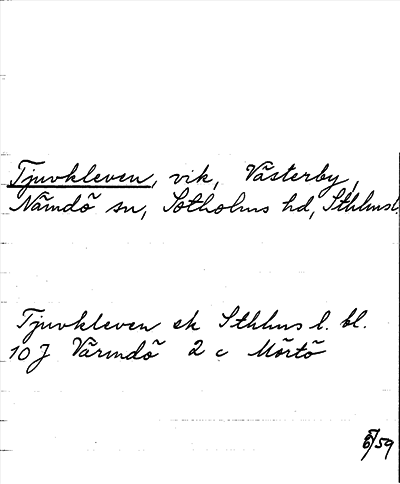 Tjuvkleven, vik, Västerby,
Nämdö sn, Sotholms hd, Sthlmsl.
Tjuvkleven ek Sthlms l. bl.
10 J Värmdö 2 c Mörtö
/59